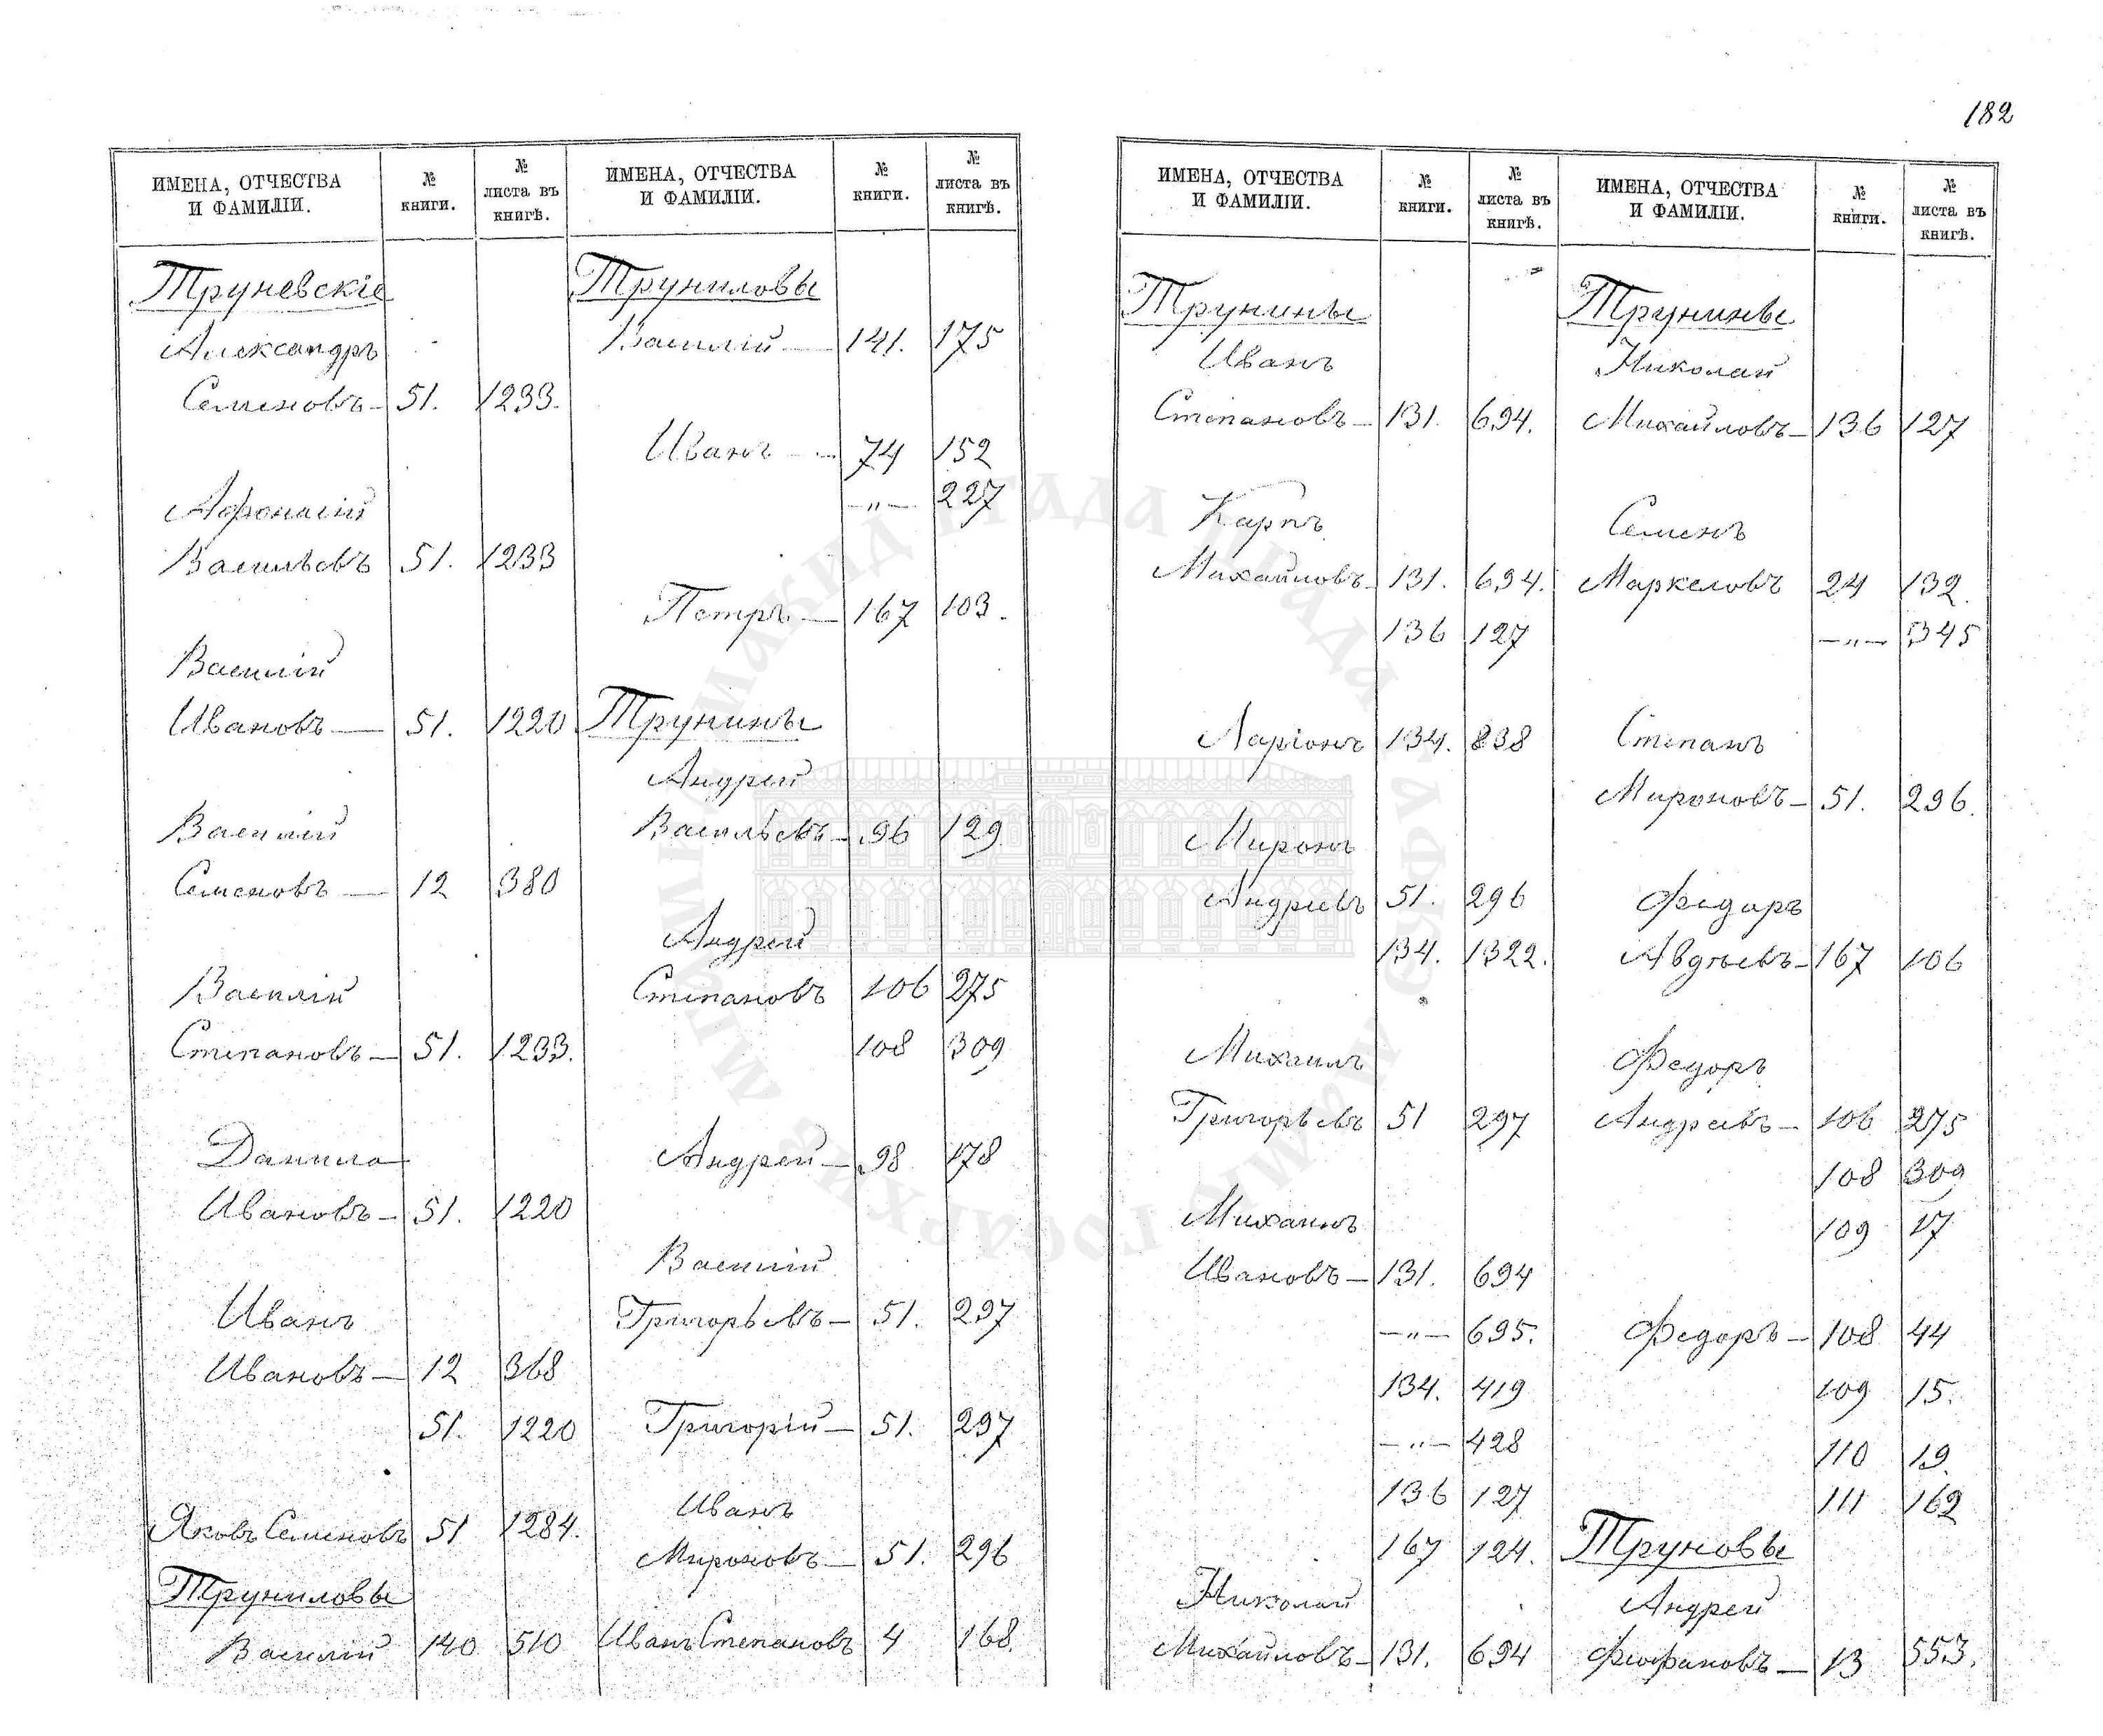 182
ИМЕНА, ОТЧЕСТВА И ФАМИЛІИ. № КНИГИ. № ЛИСТА ВЪ КНИГѢ.
Труневскіе
Александръ
Семеновъ — 51. 1233.
Афонасій
Васильевъ 51. 1233
Василій
Ивановъ — 51. 1220
Василій
Семеновъ — 12 380
Василій
Степановъ — 51. 1233.
Данила
Ивановъ — 51. 1220
Иванъ
Ивановъ — 12 368
51. 1220
Яковъ Семеновъ 51 1284.
Труниловы
Василій 140 510
ИМЕНА, ОТЧЕСТВА И ФАМИЛІИ. № КНИГИ. № ЛИСТА ВЪ КНИГѢ.
Труниловы
Василій — 141. 175
Иванъ — 74 152
—„— 227
Петръ — 167 103.
Трунины
Андрей
Васильевъ — 96 129
Андрей
Степановъ 106 275
108 309
Андрей — 98 178
Василій
Григорьевъ — 51. 297
Григорій — 51. 297
Иванъ
Мироновъ — 51. 296
Иванъ Степановъ 4 168
ИМЕНА, ОТЧЕСТВА И ФАМИЛІИ. № КНИГИ. № ЛИСТА ВЪ КНИГѢ.
Трунины
Иванъ
Степановъ — 131. 694.
Карпъ
Михайловъ — 131. 694.
136 127
Ларіонъ 134. 838
Миронъ
Андреевъ 51. 296
134. 1322.
Михаилъ
Григорьевъ 51 297
Михаилъ
Ивановъ — 131. 694
—„— 695.
134. 419
—„— 428
136 127
167 124.
Николай
Михайловъ — 131. 694
ИМЕНА, ОТЧЕСТВА И ФАМИЛІИ. № КНИГИ. № ЛИСТА ВЪ КНИГѢ.
Трунины
Николай
Михайловъ — 136 127
Семенъ
Маркеловъ 24 132.
—„— 345
Степанъ
Мироновъ — 51. 296.
Федоръ
Авдѣевъ — 167 106
Федоръ
Андреевъ — 106 275
108 309
109 17
Федоръ — 108 44
109 15.
110 19.
111 162
Труновы
Андрей
Феофановъ — 13 553.